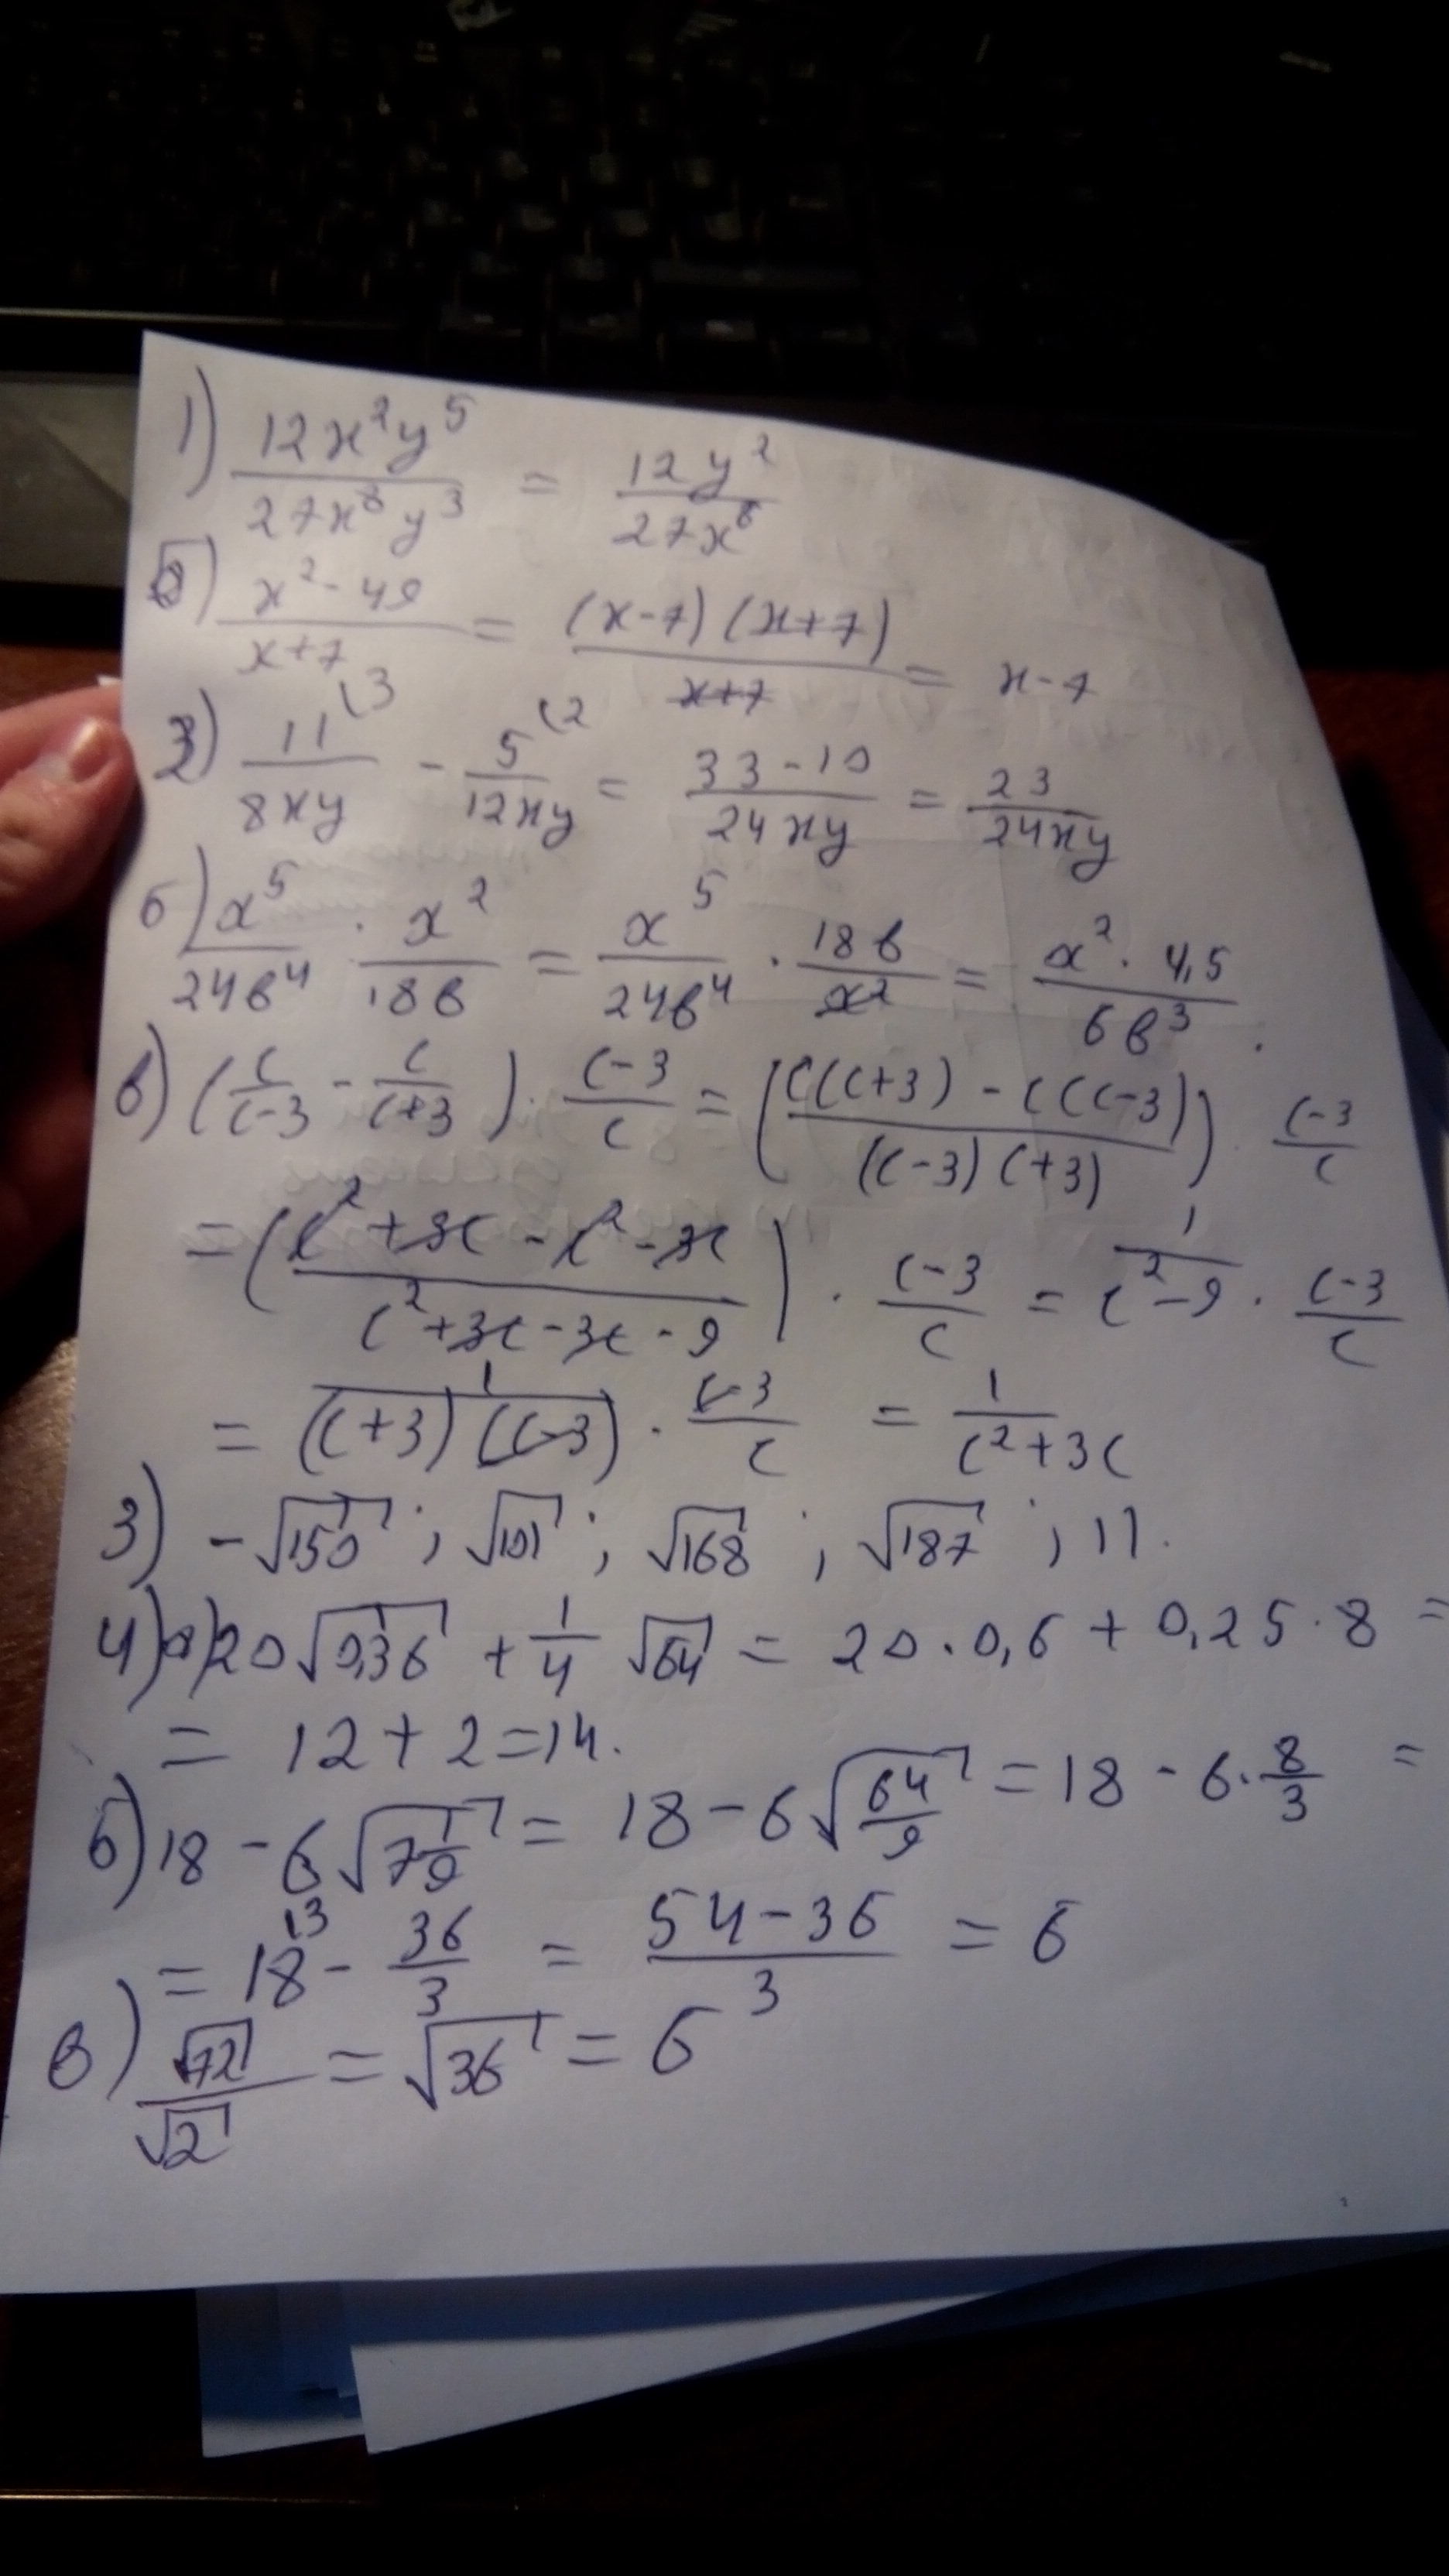 1) 12x²y⁵/27x⁸y³ = 12y²/27x⁶
б) x²-49/x+7 = (x-7)(x+7)/x+7 = x-7
2) 11/8xy - 5/12xy = 33-10/24xy = 23/24xy
б) x⁵/24в⁴ · x²/18в = x⁵/24в⁴ · 18в/x² = x² · 4,5/6в³.
в) (c/c-3 - c/c+3) · c-3/c = (c(c+3) - c(c-3)/(c-3)(+3)) · c-3/c
= (c²+3c-c²-3c/c²+3c-3c-9) · c-3/c = 1/c²-9 · c-3/c
= 1/(c+3)(c-3) · c-3/c = 1/c²+3c
3) -√150; √101; √168; √187; 11.
4) а) 20√0,36 + 1/4 √64 = 20·0,6 + 0,25·8 =
= 12+2=14.
б) 18 - 6√7 1/9 = 18-6√64/9 = 18-6·8/3 =
= 18 - 36/3 = 54-36/3 = 6
в) √72/√2 = √36 = 6